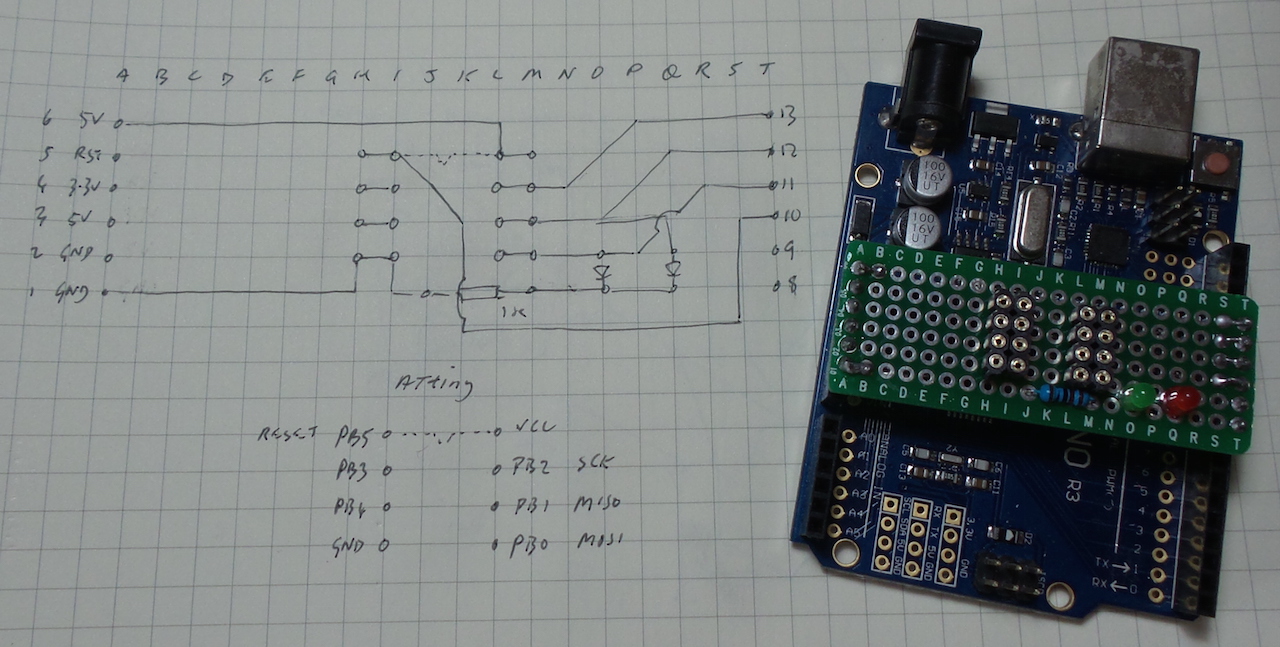 A B C D E F G H I J K L M N O P Q R S T
6 5V 13
5 RST 12
4 3.3V 11
3 5V 10
2 GND 9
1 GND 8
1K
ATtiny
RESET PB5 VCC
PB3 PB2 SCK
PB4 PB1 MISO
GND PB0 MOSI
100
16V
UT
100
16V
UT
A B C D E F G H I J K L M N O P Q R S T
A B C D E F G H I J K L M N O P Q R S T
NO R3
ANALOG IN
A0
A1
A2
A3
A4
A5
SCL SDA 5V GND
RX TX 5V GND
3.3V GND
4
3
2
TX 1
RX 0